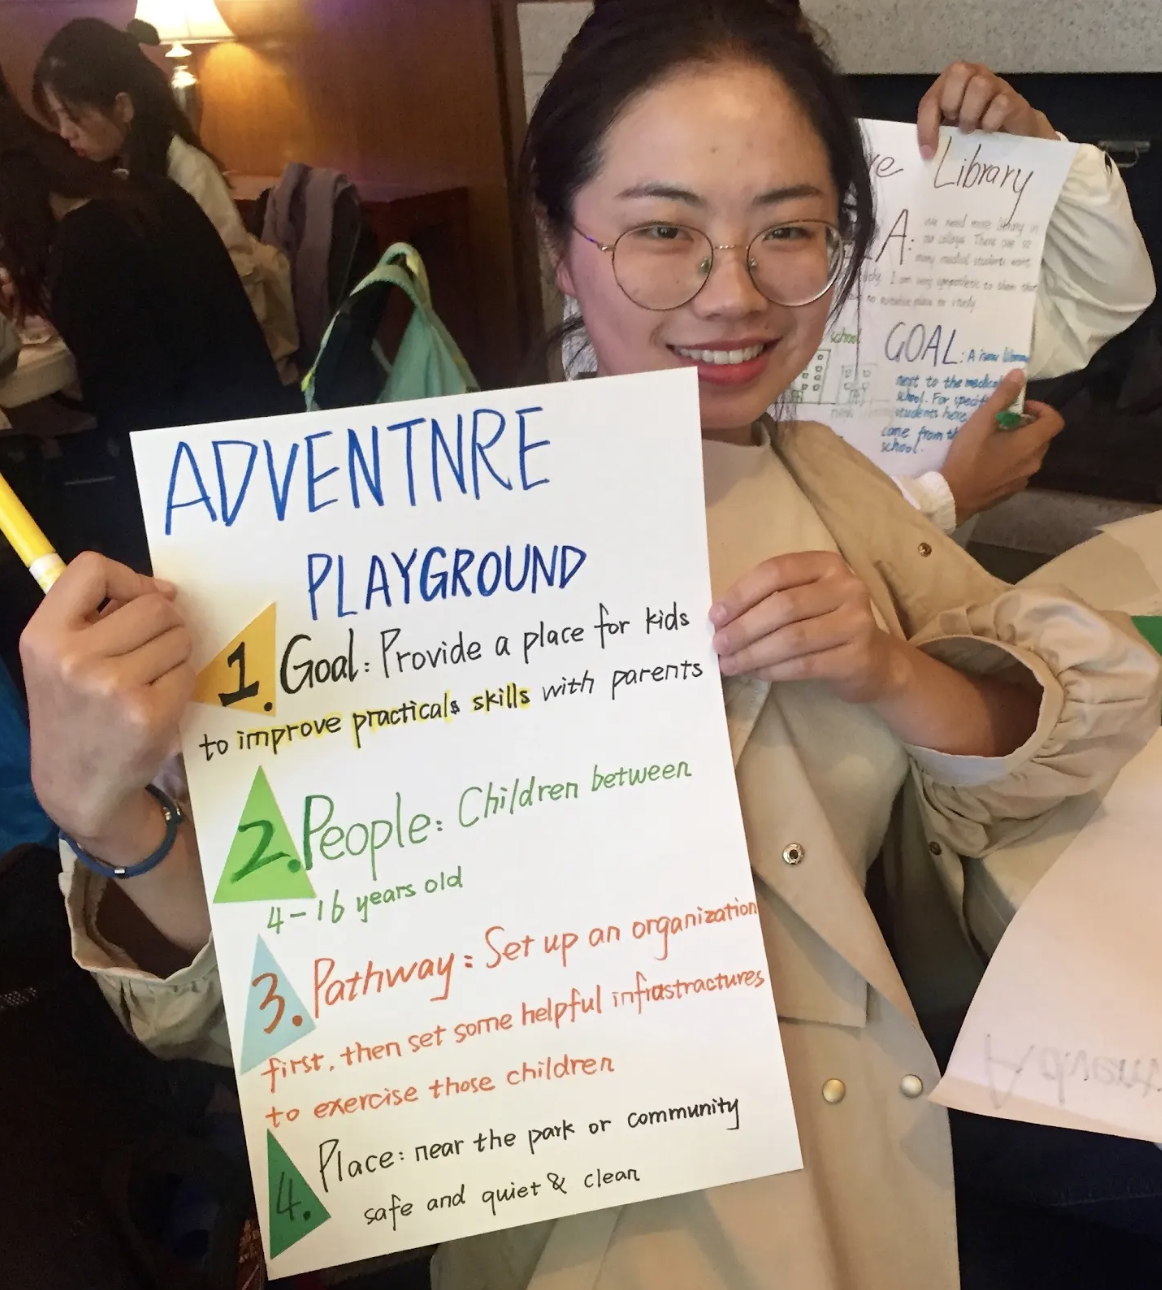 ADVENTNRE
PLAYGROUND
1. Goal: Provide a place for kids
to improve practicals skills with parents
2. People: Children between
4-16 years old
3. Pathway: Set up an organization
first, then set some helpful infrastractures
to exercise those children
4. Place: near the park or community
safe and quiet & clean
re Library
A: we need more library in
our college. There are so
many medical students want
study. I am very sympathetic to them that
no place to study
school
GOAL: A new
next to the medical
school. For
students here
come from
school.